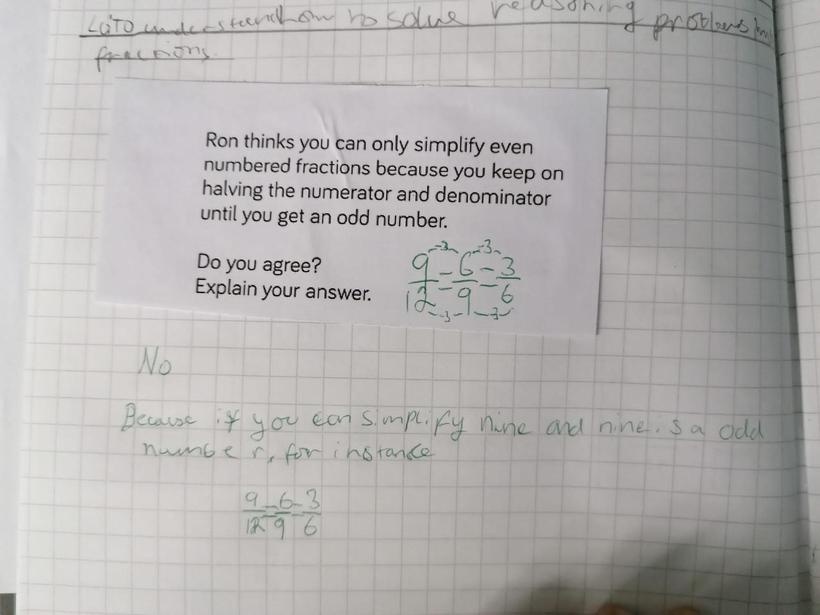 LO: To understand how to solve reasoning problems
fractions.
Ron thinks you can only simplify even
numbered fractions because you keep on
halving the numerator and denominator
until you get an odd number.
Do you agree?
Explain your answer.
-3 -3
9/12 = 6/9 = 3/6
-3 -3
No
Because if you can simplify nine and nine is a odd
number, for instance
9/12 = 6/9 = 3/6